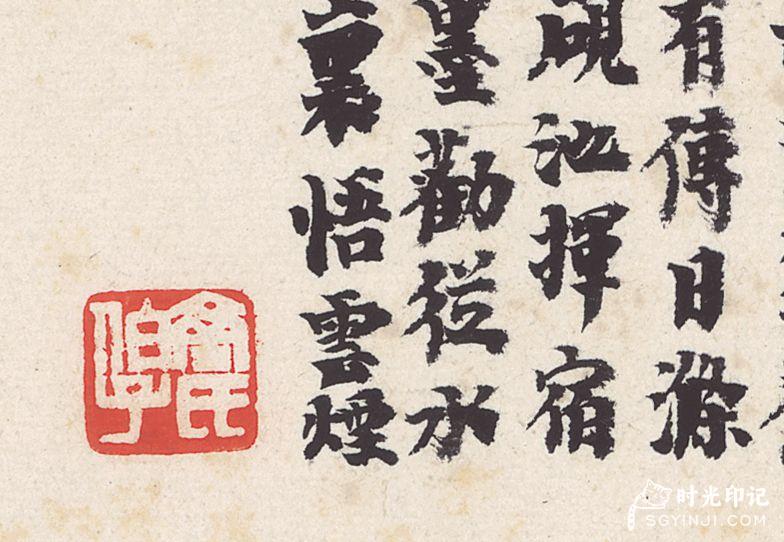 有傅日滌
硯池揮宿
墨勸從水
裏悟雲煙
时光印记
SGYINJI.COM